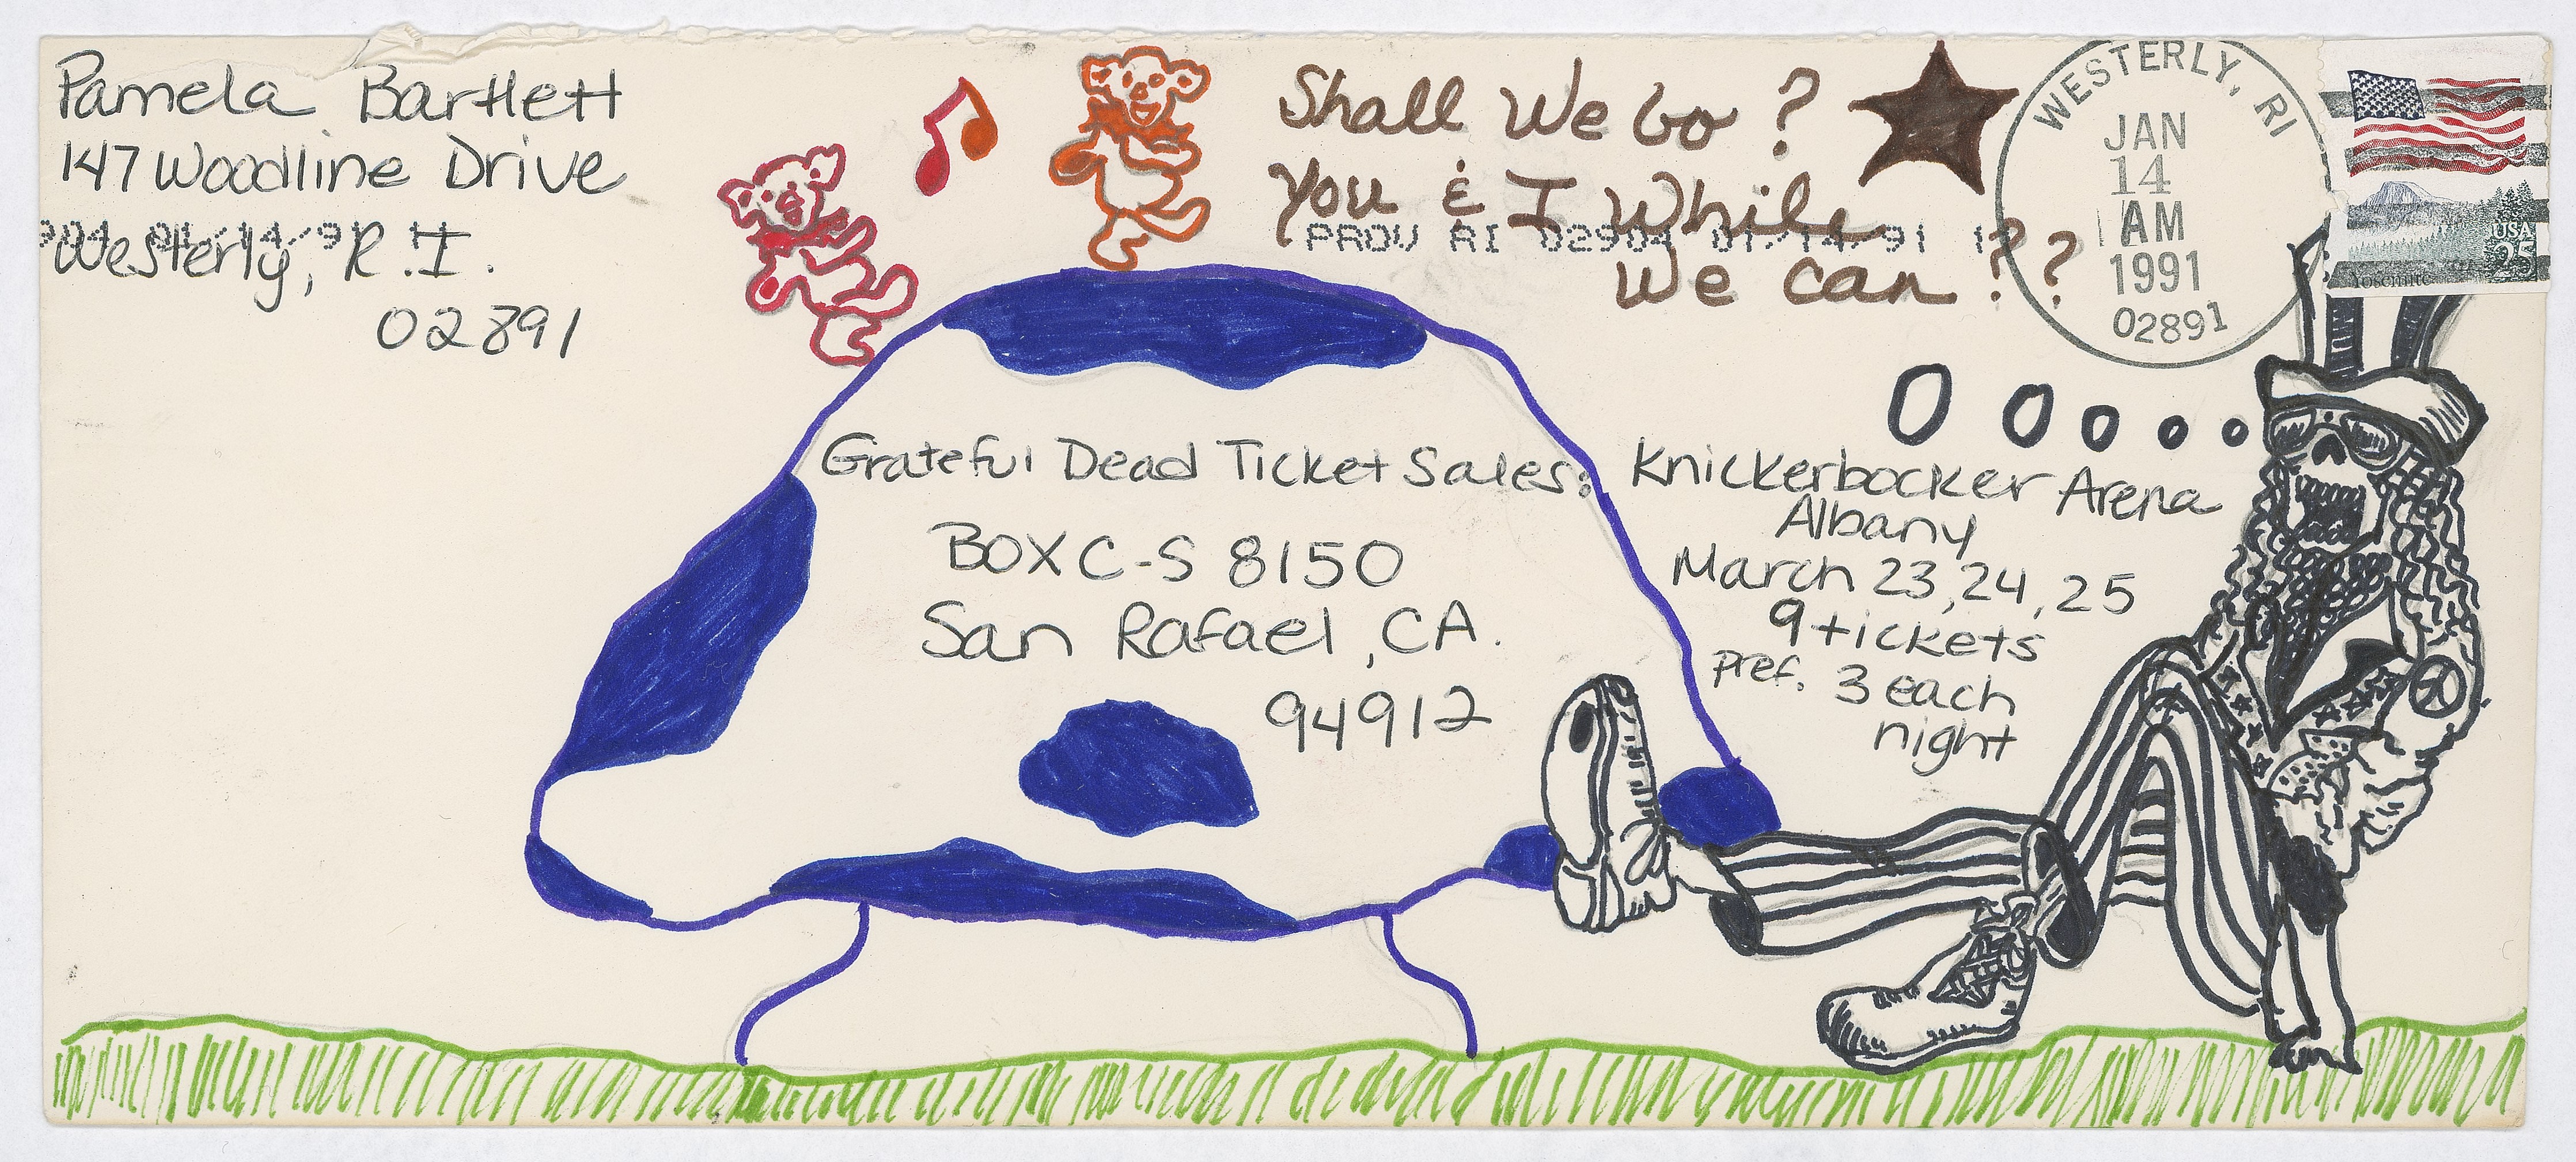 Pamela Bartlett
147 Woodline Drive
Westerly, R.I.
02891
Shall We Go?
You & I While
We can???
PROV RI 02904 01/14/91
WESTERLY, RI
JAN
14
AM
1991
02891
USA
25
Yosemite
Grateful Dead Ticket Sales:
BOX C-S 8150
San Rafael, CA.
94912
Knickerbocker Arena
Albany
March 23, 24, 25
9 tickets
pref. 3 each
night